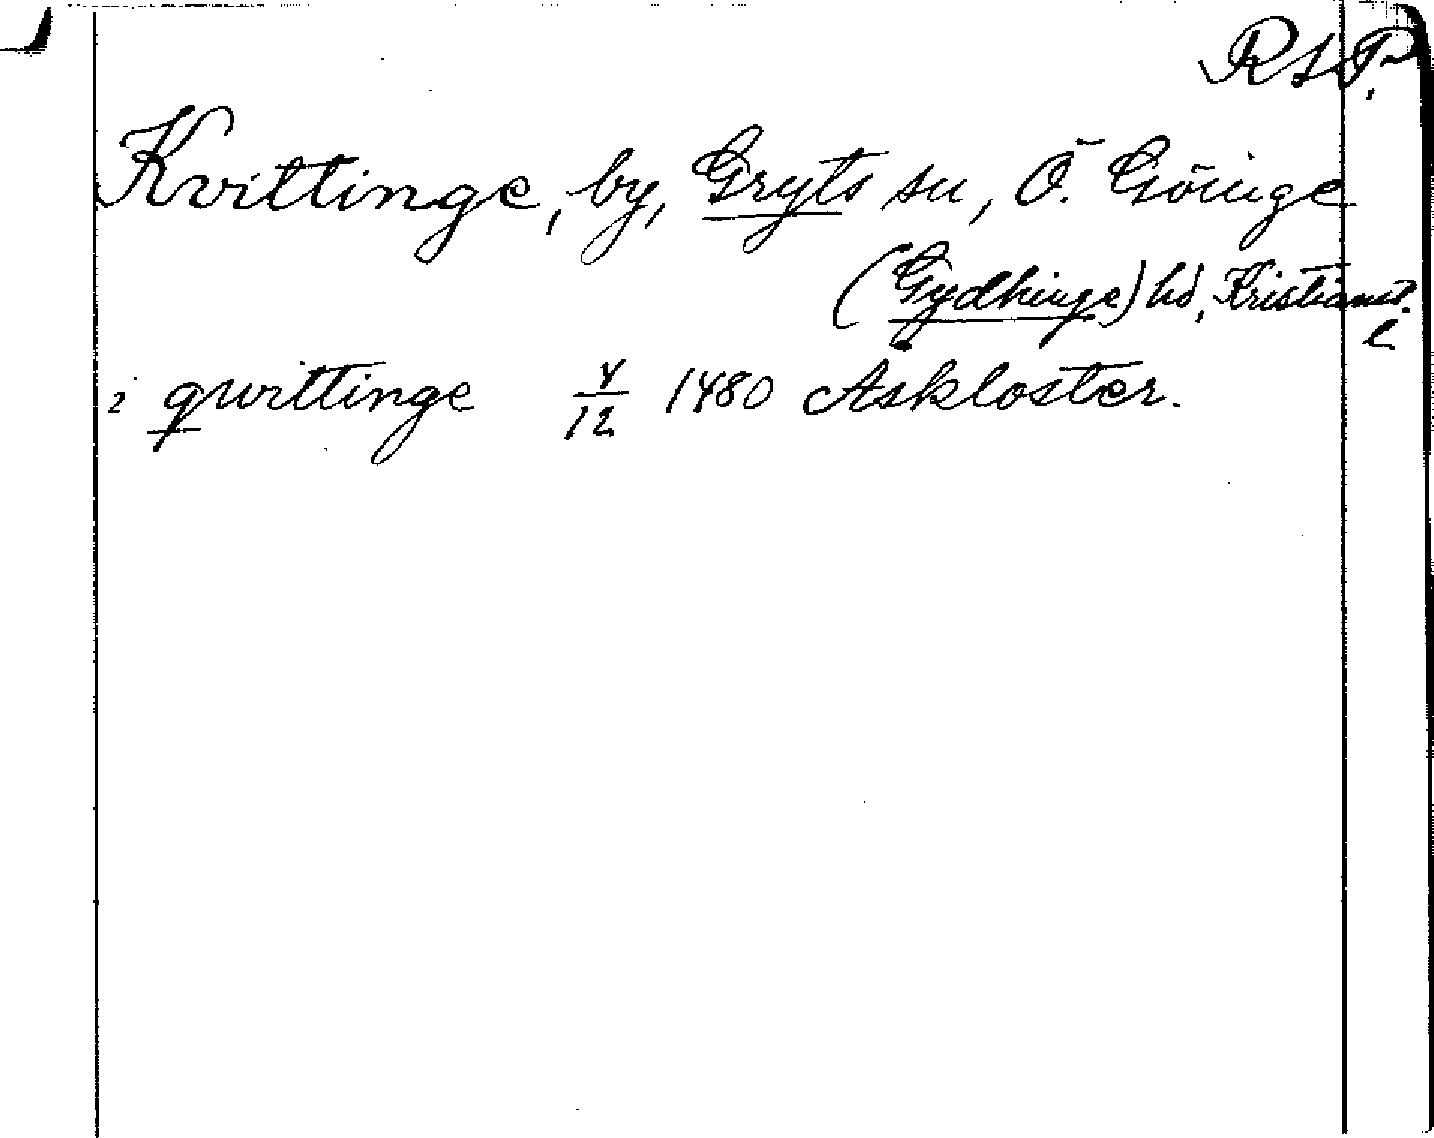 RSP.
Kvittinge, by, Gryts sn, Ö. Göinge
(Gydhinge) hd, Kristianst.
l
i qwittinge 4/12 1480 Åskloster.